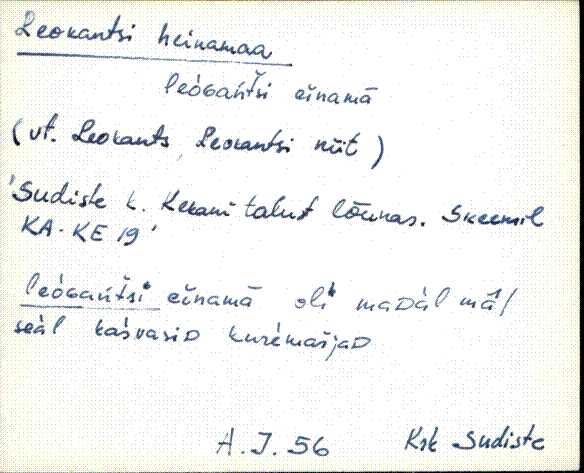 Leokantsi heinamaa
leoɢańt́ši einamā
(vt. Leokants, Leokantsi niit)
'Sudiste k. Kekani talust lõunas. Skeemil
KA-KE 19'
leoɢańt́ši einamā oli maᴅàl mā/
seàl kàsvasiᴅ kurèmaŕjaᴅ
A. J. 56 Krk Sudiste